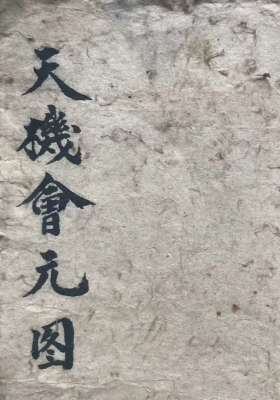 天機會元图